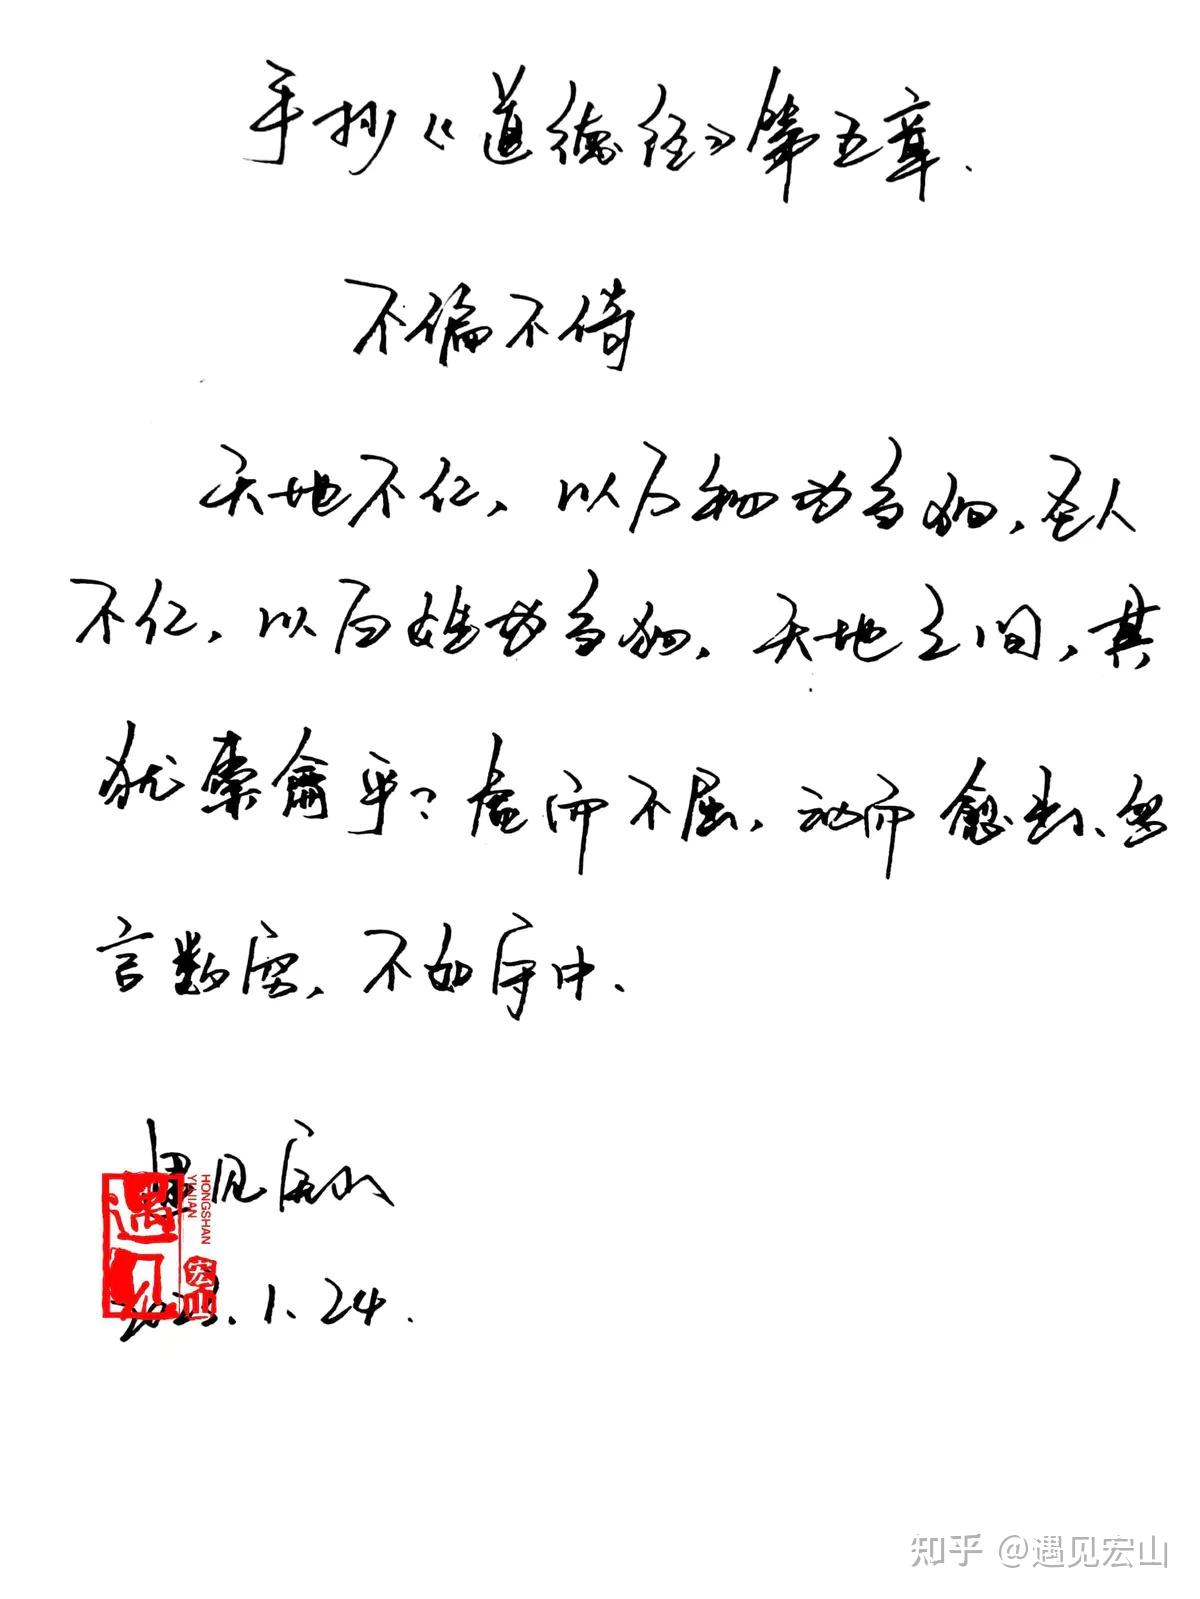 手抄《道德经》第五章.
不偏不倚
天地不仁，以万物为刍狗，圣人
不仁，以百姓为刍狗，天地之间，其
犹橐龠乎？虚而不屈，动而愈出、多
言数穷，不如守中.
遇见宏山
HONGSHAN
YUJIAN
遇见
宏山
1.24.
知乎 @遇见宏山